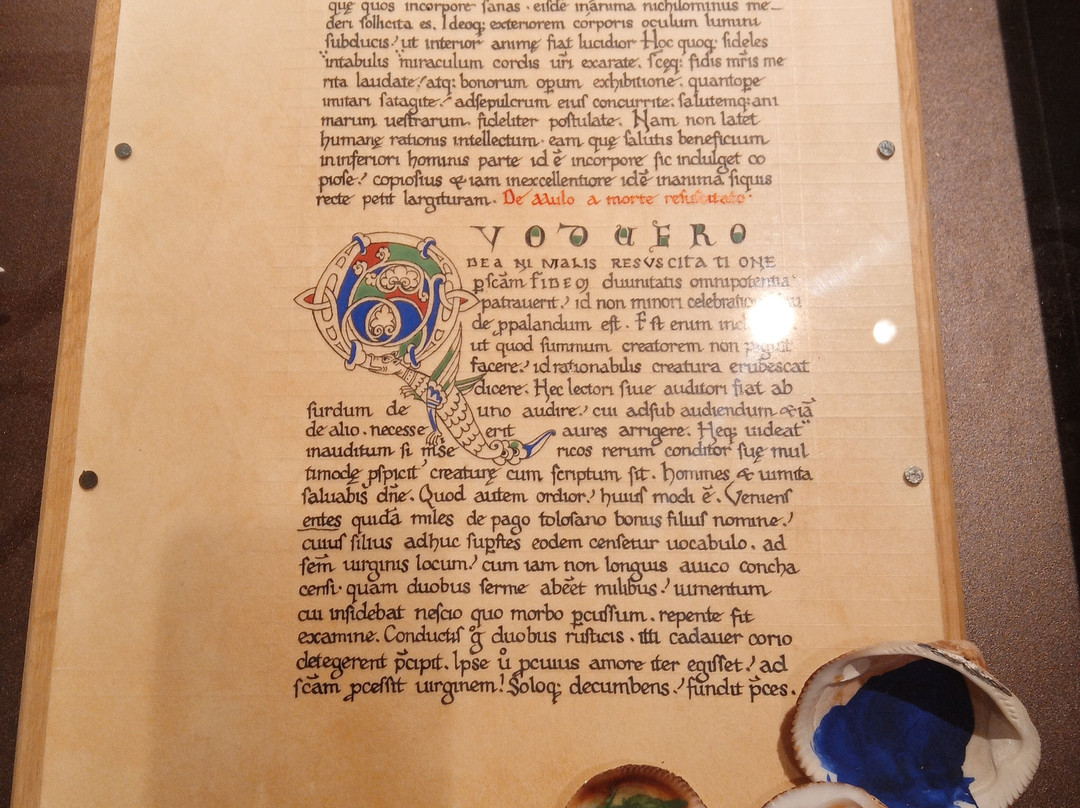 quę quos incorpore sanas. eisdē inanima nichilominus me
deri sollicita es. Ideoq; exteriorem corporis oculum lumini
subducis! ut interior animę fiat lucidior Hoc quoq; fideles
intabulis miraculum cordis uri exarate. scęq; fidis mris me
rita laudate! atq; bonorum opum exhibitione. quantope
imitari satagite! adsepulcrum eius concurrite. salutemq; ani
marum uestrarum. fideliter postulate. Nam non latet
humanę rationis intellectum. eam quę salutis beneficium
ininferiori hominis parte id ē incorpore sic indulget co
piose! copiosius & iam inexcellentiore idē inanima siquis
recte petit largituram. De Mulo a morte resuscitato.
QVOD VERO
DE ANIMALIS RESVSCITATIONE
p scām FIDEM diuinitatis omnipotentia
patrauerit! id non minori
de ppalandum est. Est enim
ut quod summum creatorem non piguit
facere! id rationabilis creatura erubescat
dicere. Hec lectori siue auditori fiat ab
surdum de uno audire! cui adsub audiendum & iā
de alio. necesse erit aures arrigere. Heq; uideat
inauditum si mise ricors rerum conditor suę mul
timodę pspicit creaturę cum scriptum sit. homines & iumta
saluabis dñe. Quod autem ordior! huius modi ē. Veniens
entes quidā miles de pago tolosano bonus filius nomine!
cuius filius adhuc supstes eodem censetur uocabulo. ad
sēm uirginis locum! cum iam non longius auico concha
censi. quam duobus ferme abēet milibus! iumentum
cui insidebat nescio quo morbo pcussum. repente fit
examine. Conductis g duobus rusticis. itti cadauer corio
detegerent pcipit. Ipse u pcuius amore iter egisset! ad
scām pcessit uirginem! Soloq; decumbens! fundit pces.